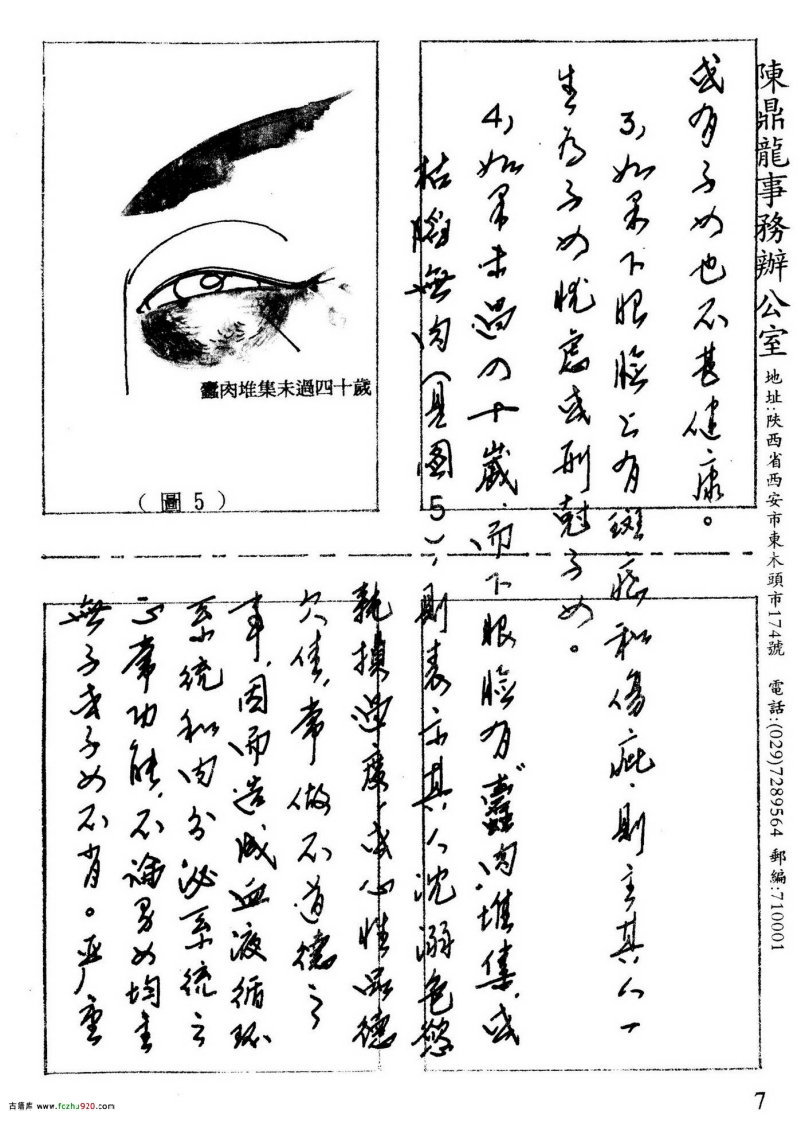 陳鼎龍事務辦公室 地址:陜西省西安市東木頭市174號 電話:(029)7289564 郵編:710001
或有子女也不甚健康。
3,如果下眼臉上有斑痣和傷疵,則主其人一
生為子女忧慮或刑尅子女。
4,如果未過四十歲,而下眼臉有“蠹肉”堆集,或
枯陷無肉(見圖5),則表示其人沈溺色慾
耗損過度,或心性品德
欠佳,常做不道德之
事,因而造成血液循环
系统和内分泌系统之
正常功能,不論男女均主
無子或子女不肖。严重
蠹肉堆集未過四十歲
(圖5)
7
古籍库 www.fozhu920.com